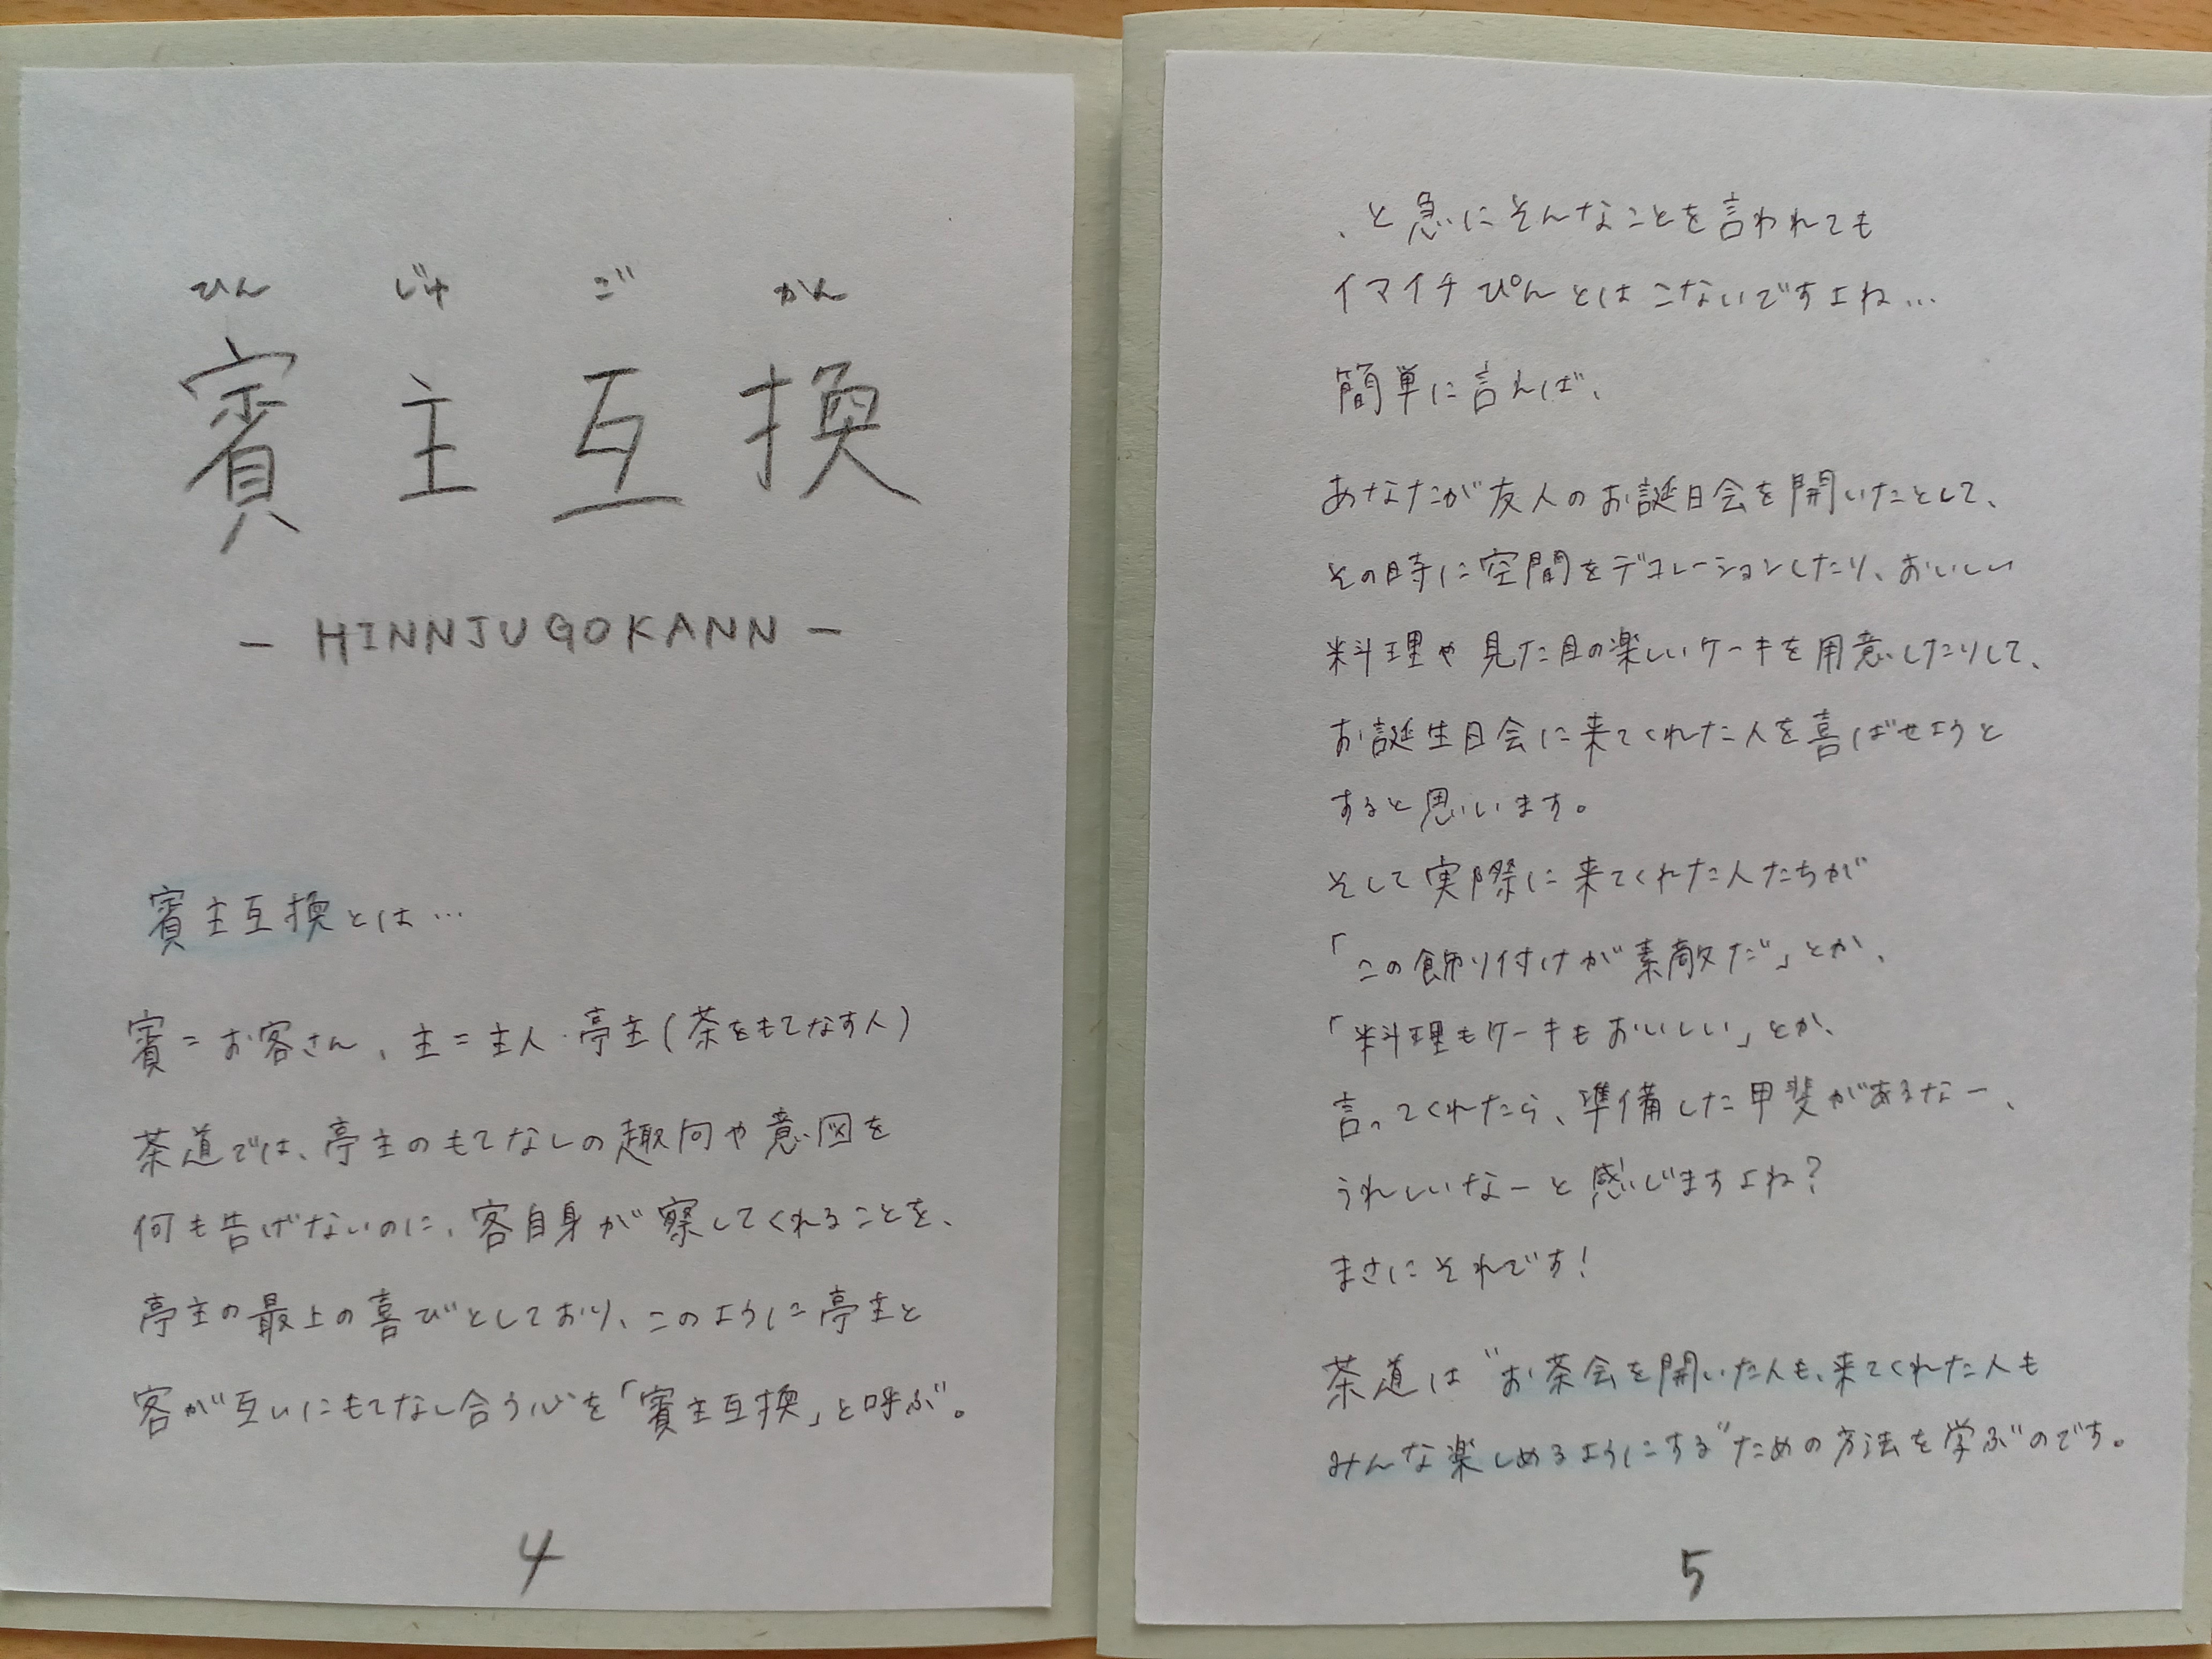 ひん じゅ ご かん
賓主互換
- HINNJUGOKANN -
賓主互換とは…
賓=お客さん、主=主人・亭主(茶をもてなす人)
茶道では、亭主のもてなしの趣向や意図を
何も告げないのに、客自身が察してくれることを、
亭主の最上の喜びとしており、このように亭主と
客が互いにもてなし合う心を「賓主互換」と呼ぶ。
4
、と急にそんなことを言われても
イマイチぴんとはこないですよね…
簡単に言えば、
あなたが友人のお誕日会を開いたとして、
その時に空間をデコレーションしたり、おいしい
料理や見た目の楽しいケーキを用意したりして、
お誕生日会に来てくれた人を喜ばせようと
すると思います。
そして実際に来てくれた人たちが
「この飾り付けが素敵だ」とか、
「料理もケーキもおいしい」とか、
言ってくれたら、準備した甲斐があるなー、
うれしいなーと感じますよね?
まさにそれです!
茶道は"お茶会を開いた人も、来てくれた人も
みんな楽しめるようにする"ための方法を学ぶのです。
5